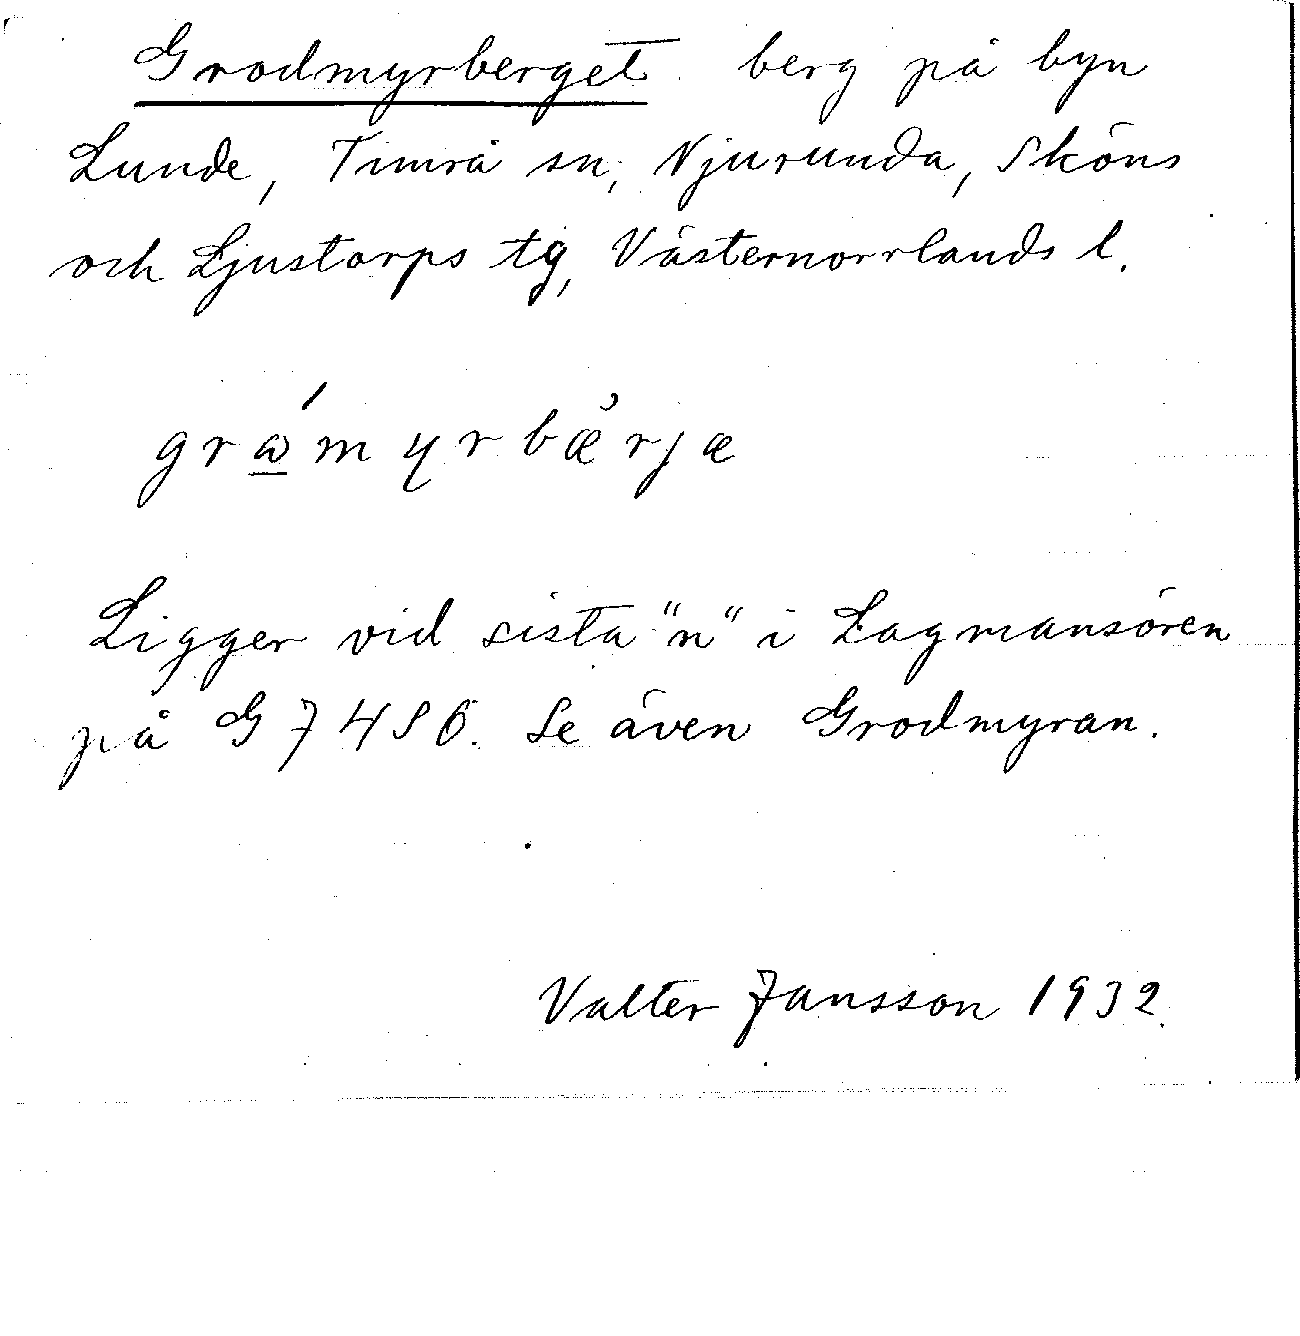 Grodmyrberget berg på byn
Lunde, Timrå sn, Njurunda, Sköns
och Ljustorps tg, Västernorrlands l.
gra̲̲ḿyrbæ̓rjæ
Ligger vid sista "n" i Lagmansören
på G 7486. Se även Grodmyran.
Valter Jansson 1932.